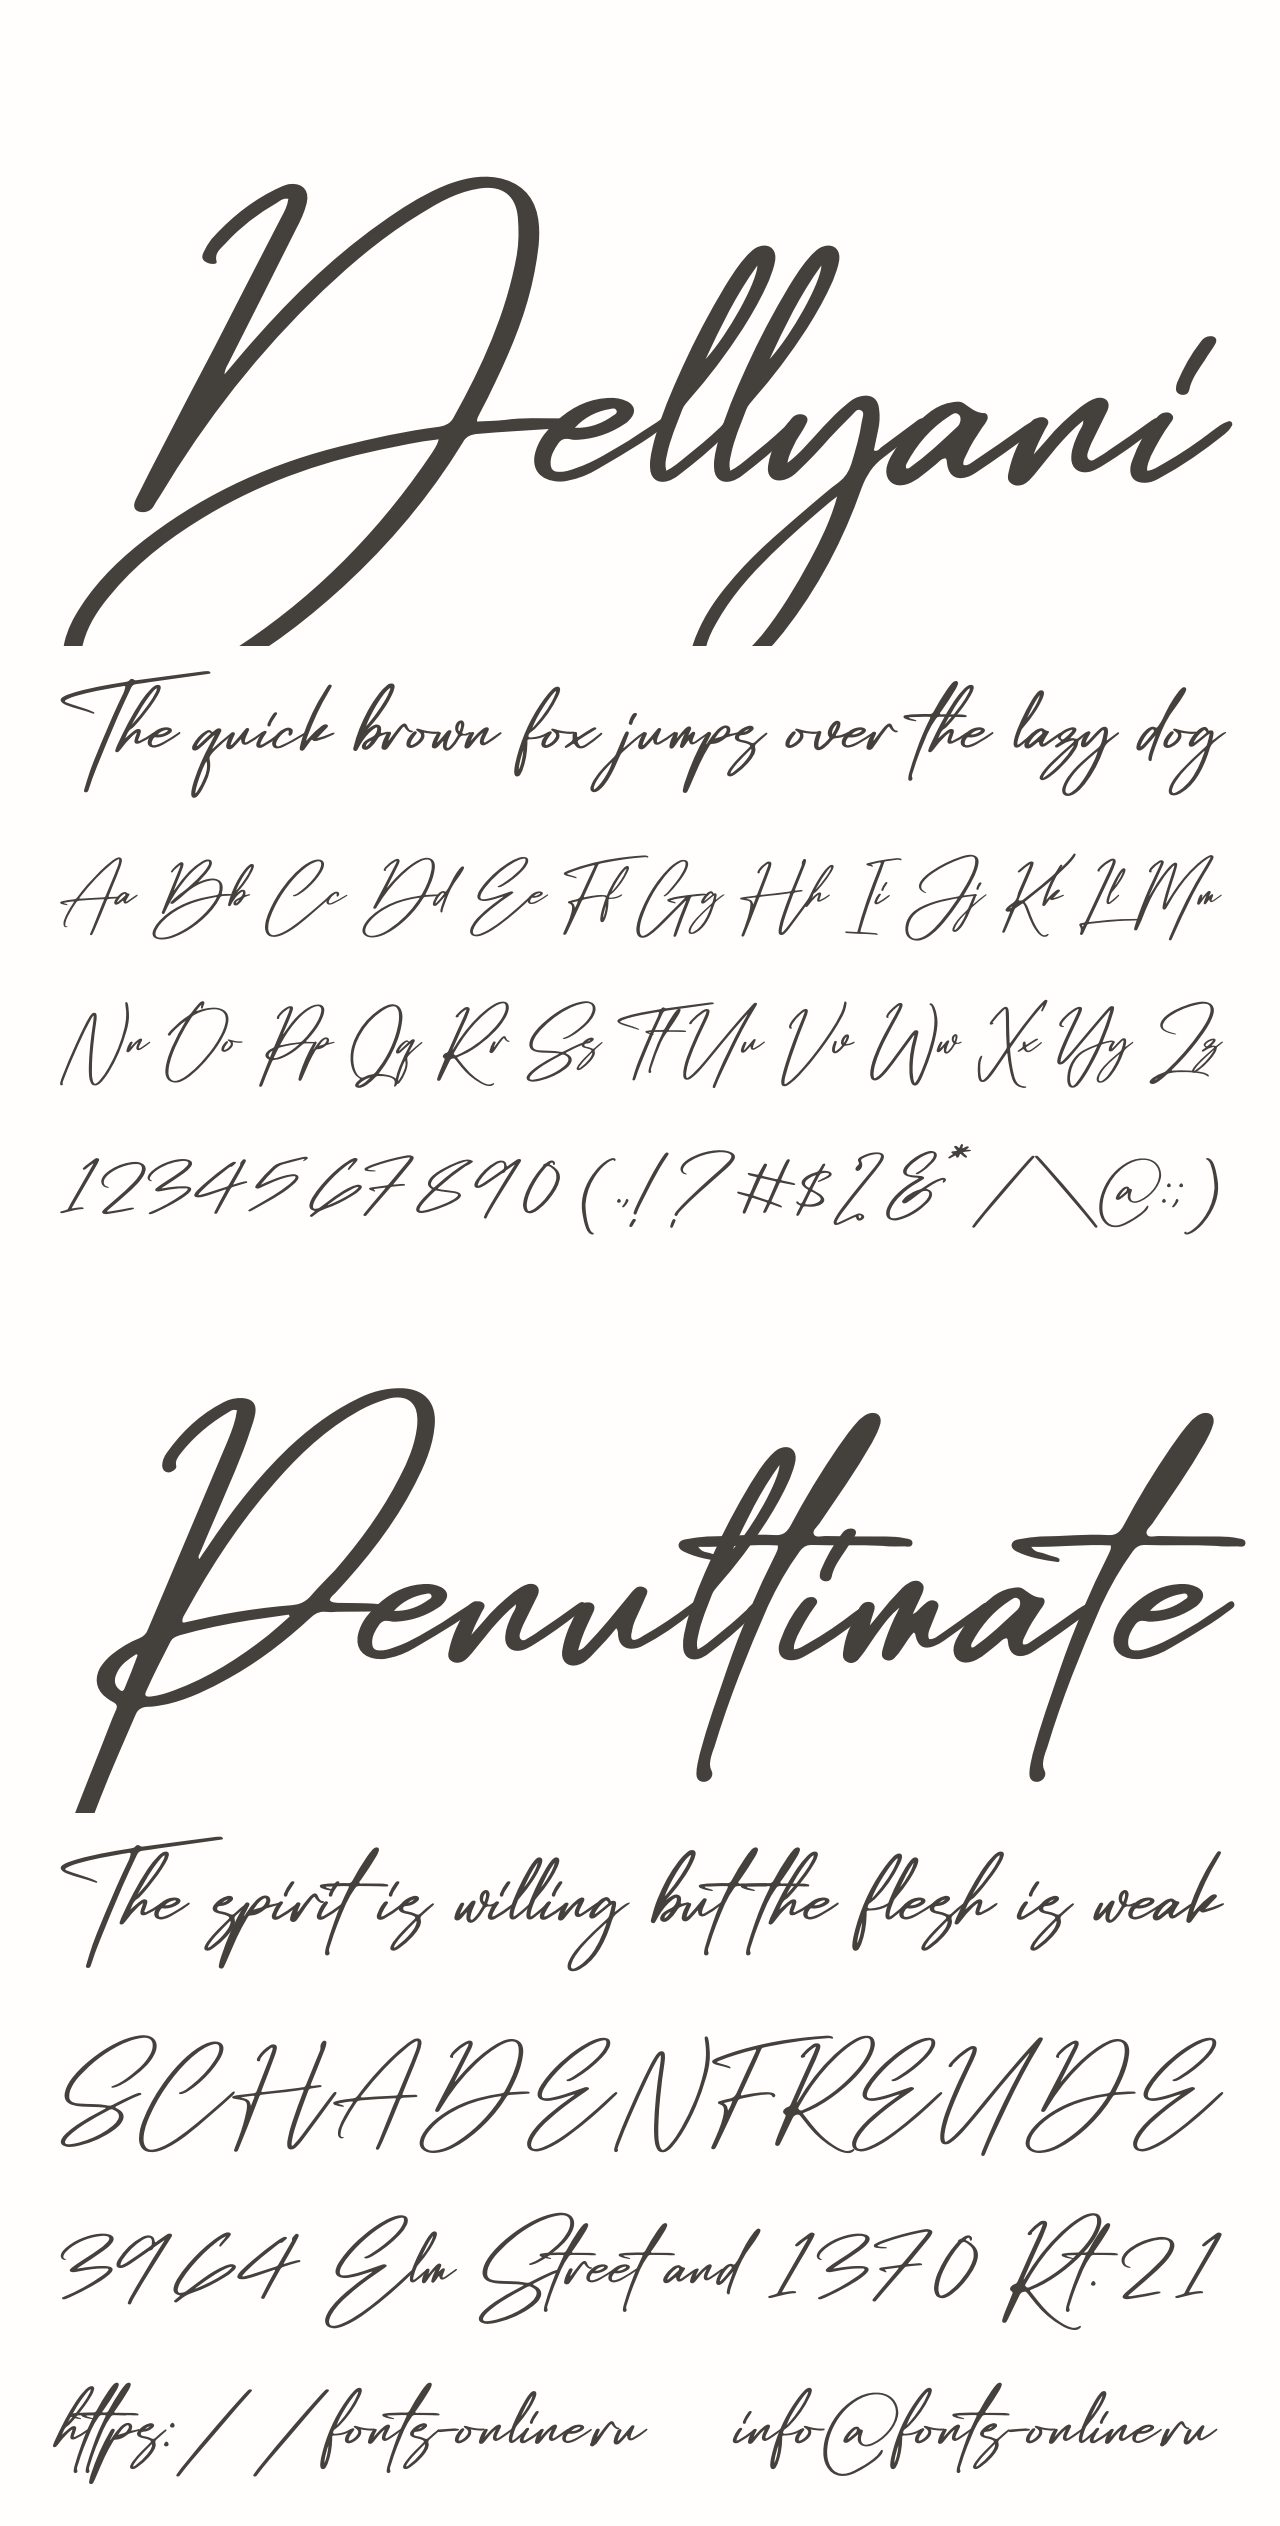 Dellyani
The quick brown fox jumps over the lazy dog
Aa Bb Cc Dd Ee Ff Gg Hh Ii Jj Kk Ll Mm
Nn Oo Pp Qq Rr Ss Tt Uu Vv Ww Xx Yy Zz
1234567890 (.,!?#$%&*/\@:;)
Penultimate
The spirit is willing but the flesh is weak
SCHADENFREUDE
3964 Elm Street and 1370 Rt. 21
https://fonts-online.ru info@fonts-online.ru